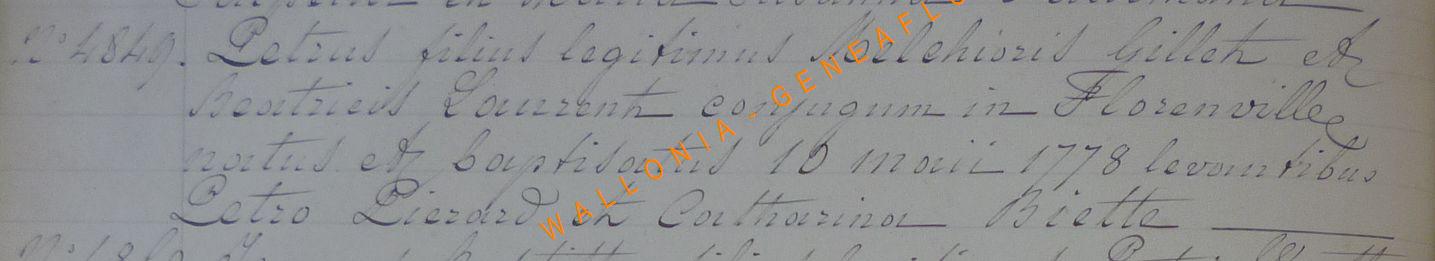 in
N° 4849. Petrus filius legitimus Melchioris Gillet et
Beatricis Laurent conjugum in Florenville
natus et baptisatus 10 maii 1778 levantibus
Petro Pierard et Catharina Biette
WALLONIA - GENEAFL